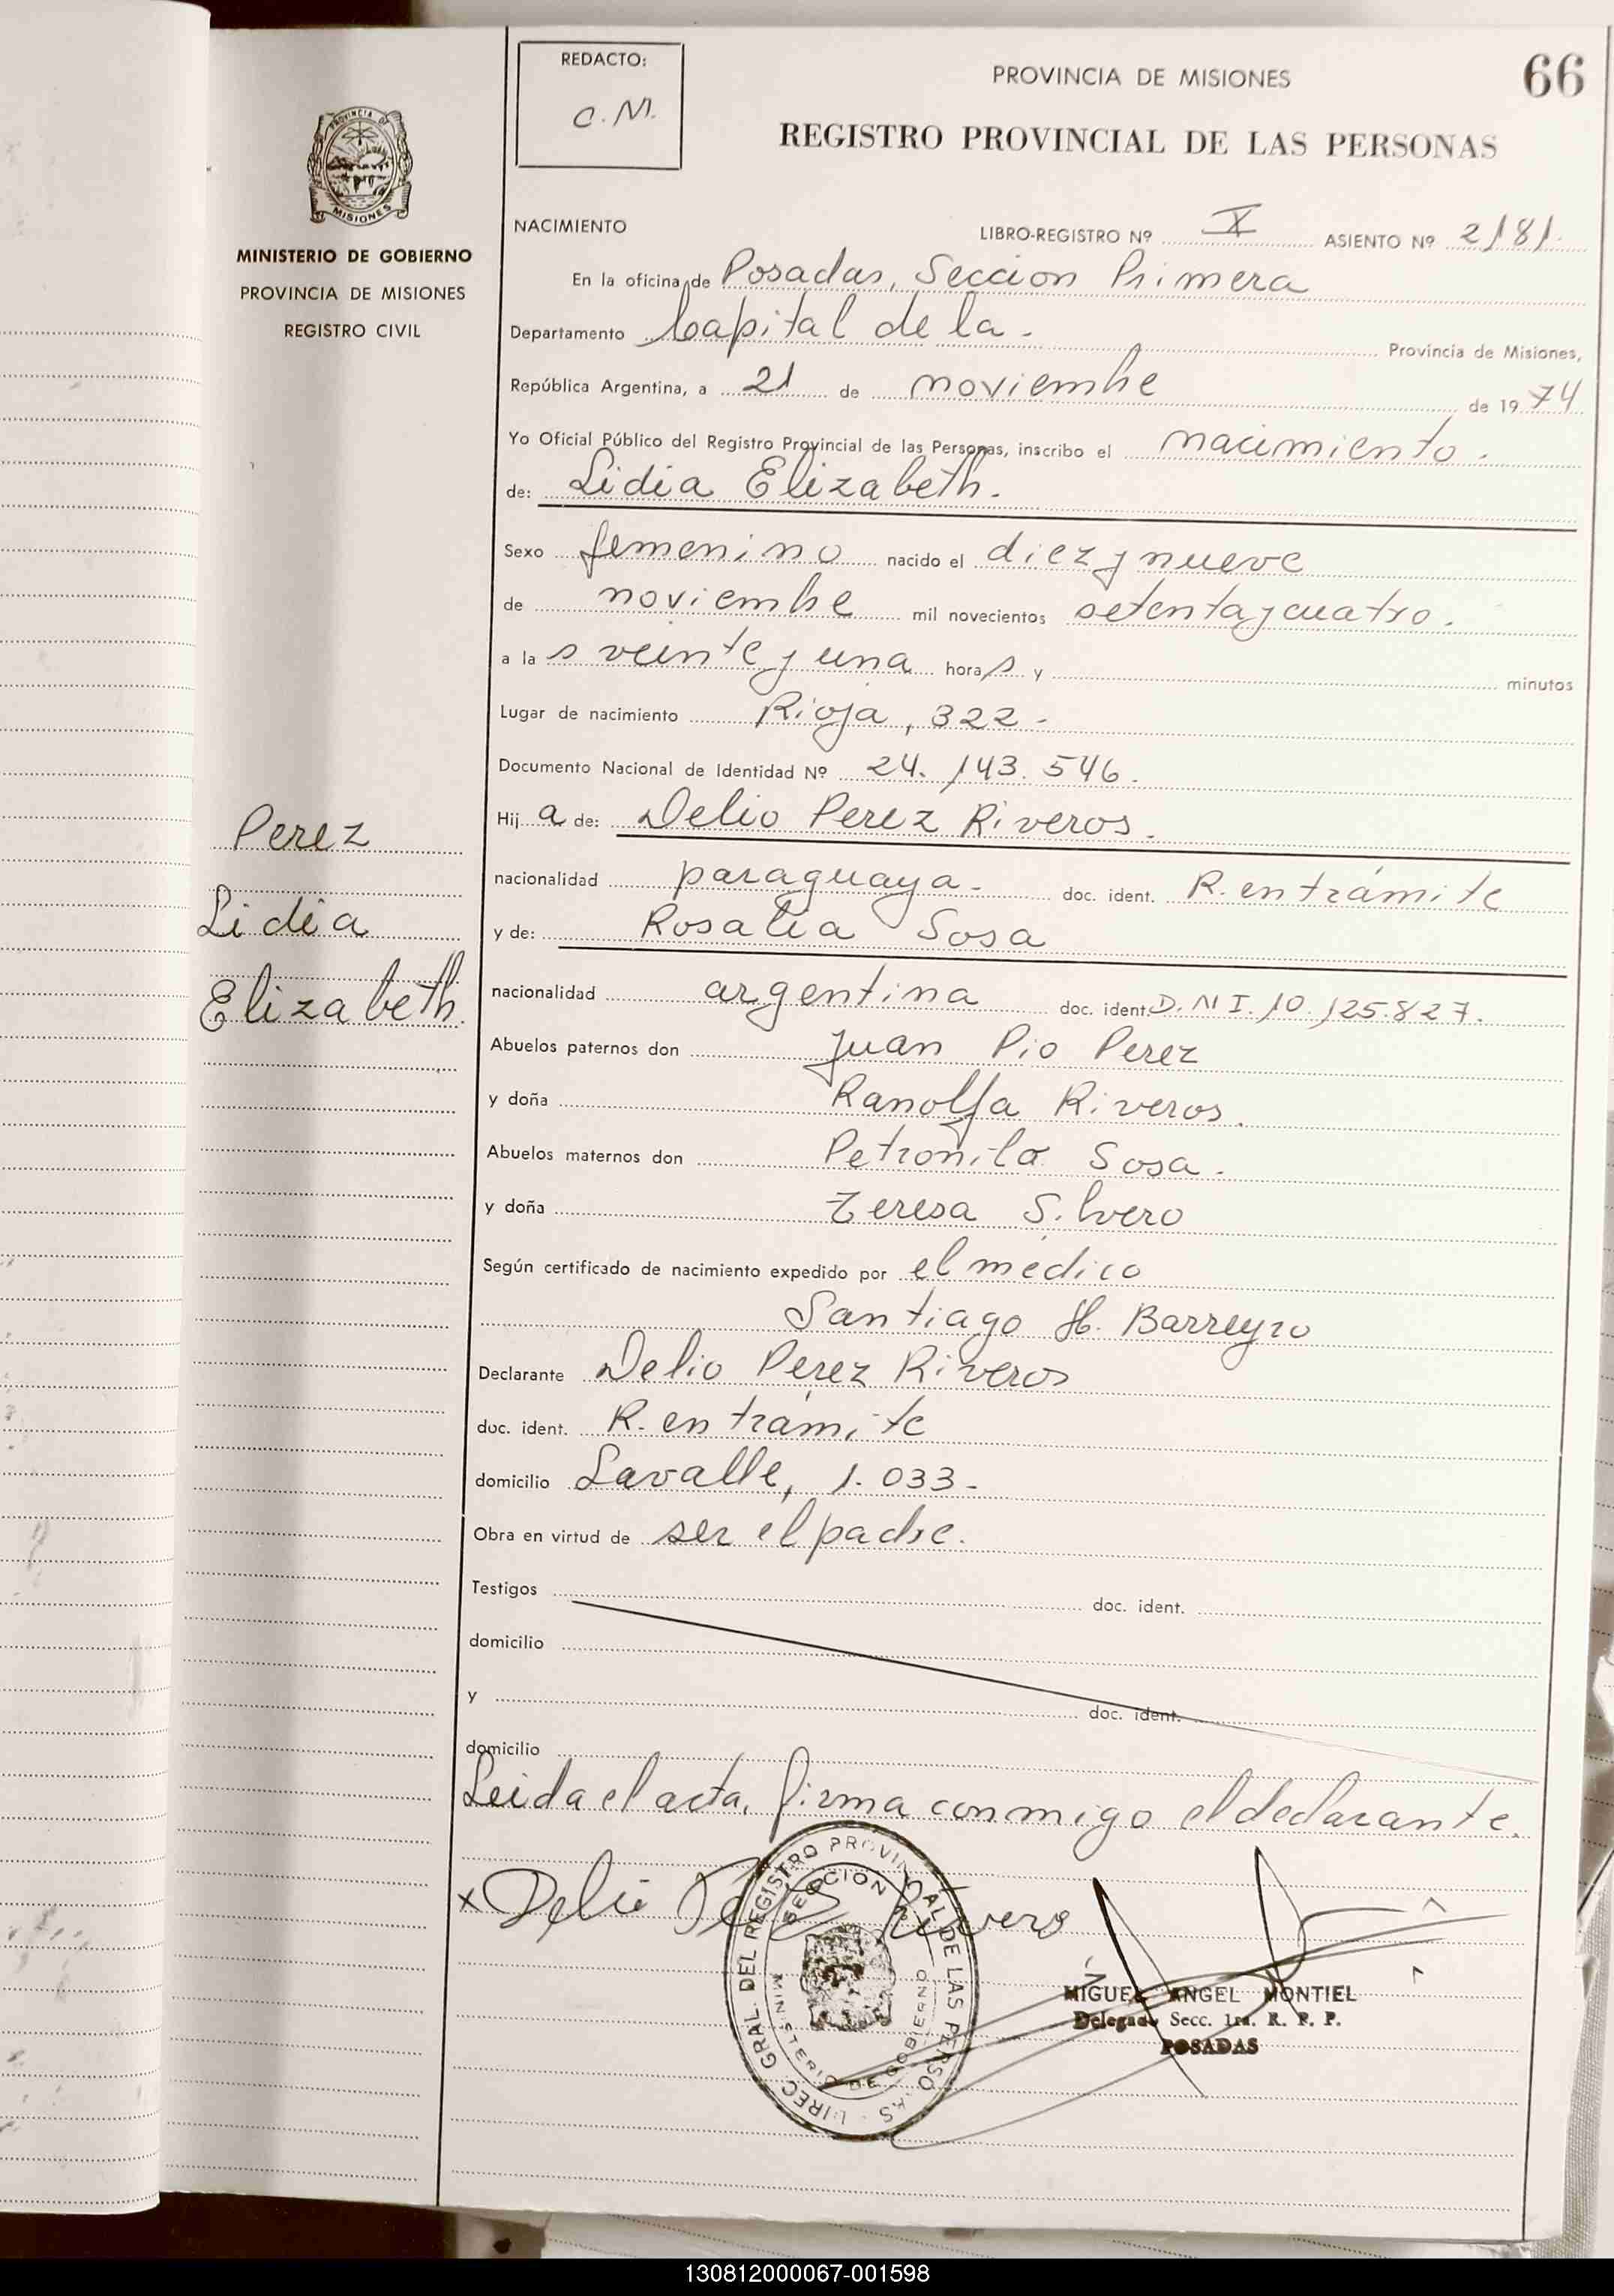 REDACTO:
C. M.
PROVINCIA DE MISIONES
66
REGISTRO PROVINCIAL DE LAS PERSONAS
PROVINCIA DE
MISIONES
MINISTERIO DE GOBIERNO
PROVINCIA DE MISIONES
REGISTRO CIVIL
NACIMIENTO
LIBRO-REGISTRO Nº X ASIENTO Nº 2181.
En la oficina de Posadas, Seccion Primera
Departamento Capital de la - Provincia de Misiones,
República Argentina, a 21 de noviembre de 19 74
Yo Oficial Público del Registro Provincial de las Personas, inscribo el nacimiento.
de: Lidia Elizabeth.
Sexo femenino nacido el diez y nueve
de noviembre mil novecientos setenta y cuatro.
a la s veinte y una hora s y minutos
Lugar de nacimiento Rioja, 322-
Documento Nacional de Identidad Nº 24.143.546.
Hij a de: Delio Perez Riveros.
nacionalidad paraguaya- doc. ident. R. en trámite
y de: Rosalia Sosa
nacionalidad argentina doc. ident. D.N I. 10.125.827.
Abuelos paternos don Juan Pio Perez
y doña Ranolfa Riveros.
Abuelos maternos don Petronilo Sosa.
y doña Teresa Silvero
Según certificado de nacimiento expedido por el médico
Santiago H. Barreyro
Declarante Delio Perez Riveros
doc. ident. R. en trámite
domicilio Lavalle, 1.033-
Obra en virtud de ser el padre.
Testigos doc. ident.
domicilio
y doc. ident.
domicilio
Leida el acta, firma conmigo el declarante.
Perez
Lidia
Elizabeth.
x Delio Perez Rivero
DIREC. GRAL. DEL REGISTRO PROVINCIAL DE LAS PERSONAS
SECCION
MINISTERIO DE GOBIERNO
MIGUEL ANGEL MONTIEL
Delegado Secc. 1ra. R. P. P.
POSADAS
130812000067-001598